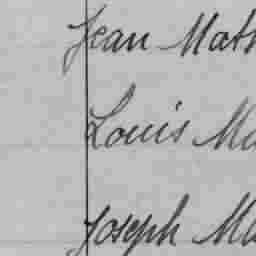 Jean Math
Louis Ma
Joseph Ma